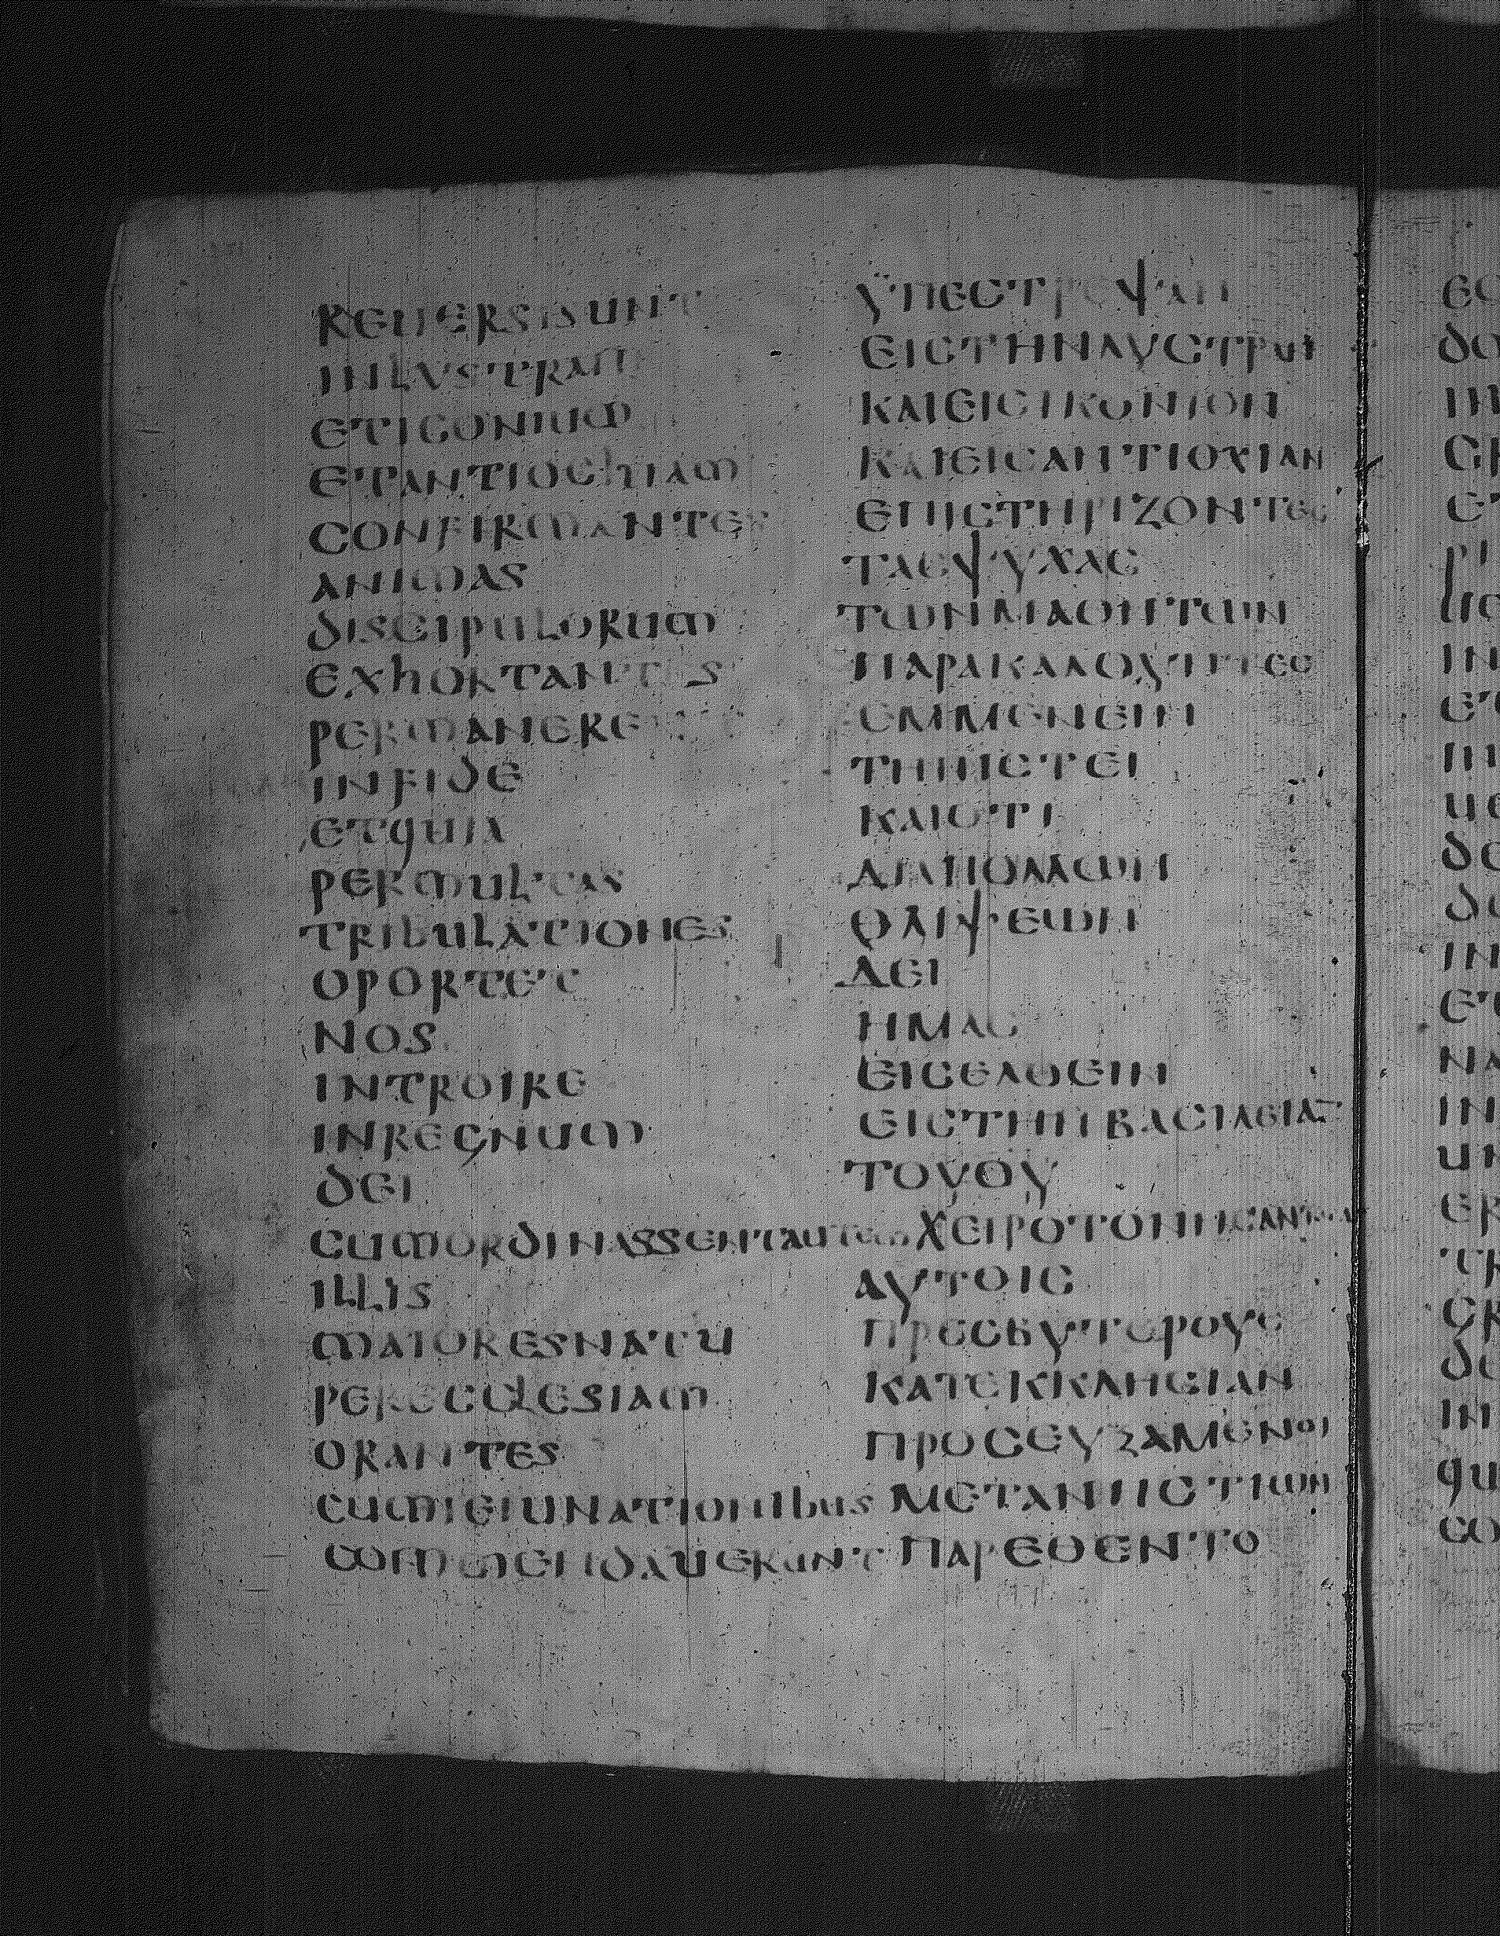 REUERSISUNT
INLVSTRAM
ETICONIUM
ETANTIOCHIAM
CONFIRMANTES
ANIMAS
DISCIPULORUM
EXHORTANTES
PERMANERE
INFIDE
ETQUIA
PERMULTAS
TRIBULATIONES
OPORTET
NOS
INTROIRE
INREGNUM
DEI
CUMORDINASSENTAUTEM
ILLIS
MAIORESNATU
PERECCLESIAM
ORANTES
CUMIEIUNATIONIBUS
COMMENDAUERUNT
ΥΠΕϹΤΡΕΨΑΝ
ΕΙϹΤΗΝΛΥϹΤΡΑΝ
ΚΑΙΕΙϹΙΚΟΝΙΟΝ
ΚΑΙΕΙϹΑΝΤΙΟΧΙΑΝ
ΕΠΙϹΤΗΡΙΖΟΝΤΕϹ
ΤΑϹΨΥΧΑϹ
ΤΩΝΜΑΘΗΤΩΝ
ΠΑΡΑΚΑΛΟΥΝΤΕϹ
ΕΜΜΕΝΕΙΝ
ΤΗΠΙϹΤΕΙ
ΚΑΙΟΤΙ
ΔΙΑΠΟΛΛΩΝ
ΘΛΙΨΕΩΝ
ΔΕΙ
ΗΜΑϹ
ΕΙϹΕΛΘΕΙΝ
ΕΙϹΤΗΝΒΑϹΙΛΕΙΑ̅
ΤΟΥΘΥ
ΧΕΙΡΟΤΟΝΗϹΑΝΤΕϹ
ΑΥΤΟΙϹ
ΠΡΕϹΒΥΤΕΡΟΥϹ
ΚΑΤΕΚΚΛΗϹΙΑΝ
ΠΡΟϹΕΥΞΑΜΕΝΟΙ
ΜΕΤΑΝΗϹΤΙΩΝ
ΠΑΡΕΘΕΝΤΟ